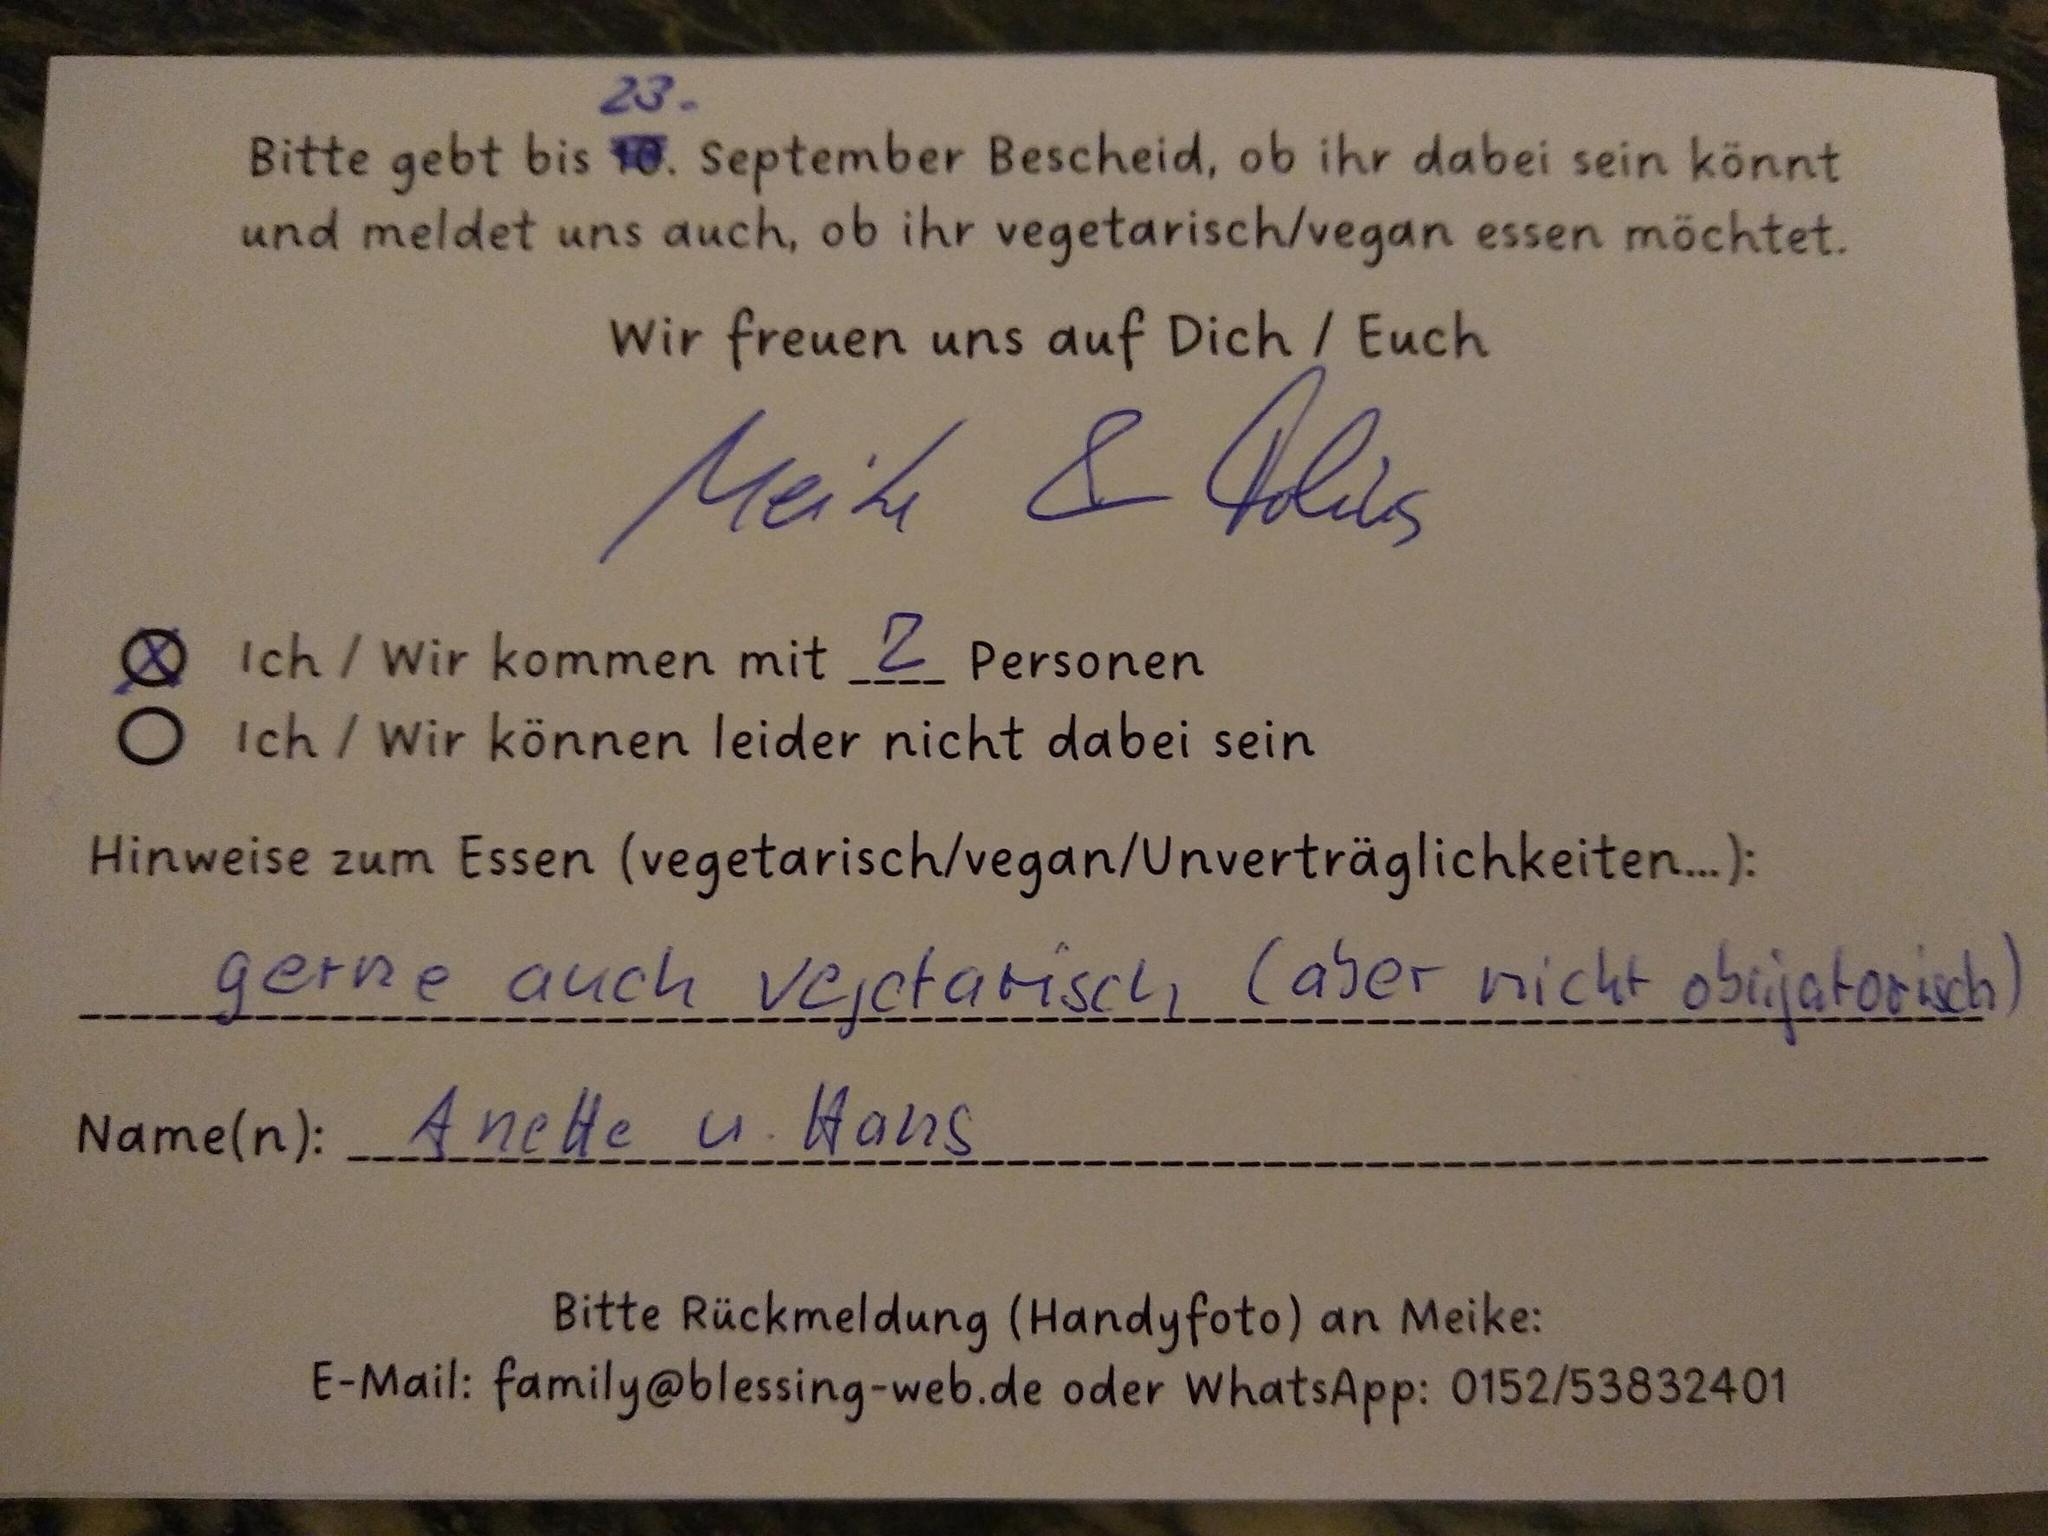 23.
Bitte gebt bis 10. September Bescheid, ob ihr dabei sein könnt
und meldet uns auch, ob ihr vegetarisch/vegan essen möchtet.
Wir freuen uns auf Dich / Euch
Meike & Tobias
Ich / Wir kommen mit 2 Personen
Ich / Wir können leider nicht dabei sein
Hinweise zum Essen (vegetarisch/vegan/Unverträglichkeiten...):
gerne auch vegetarisch (aber nicht obligatorisch)
Name(n): Anette u. Hans
Bitte Rückmeldung (Handyfoto) an Meike:
E-Mail: family@blessing-web.de oder WhatsApp: 0152/53832401